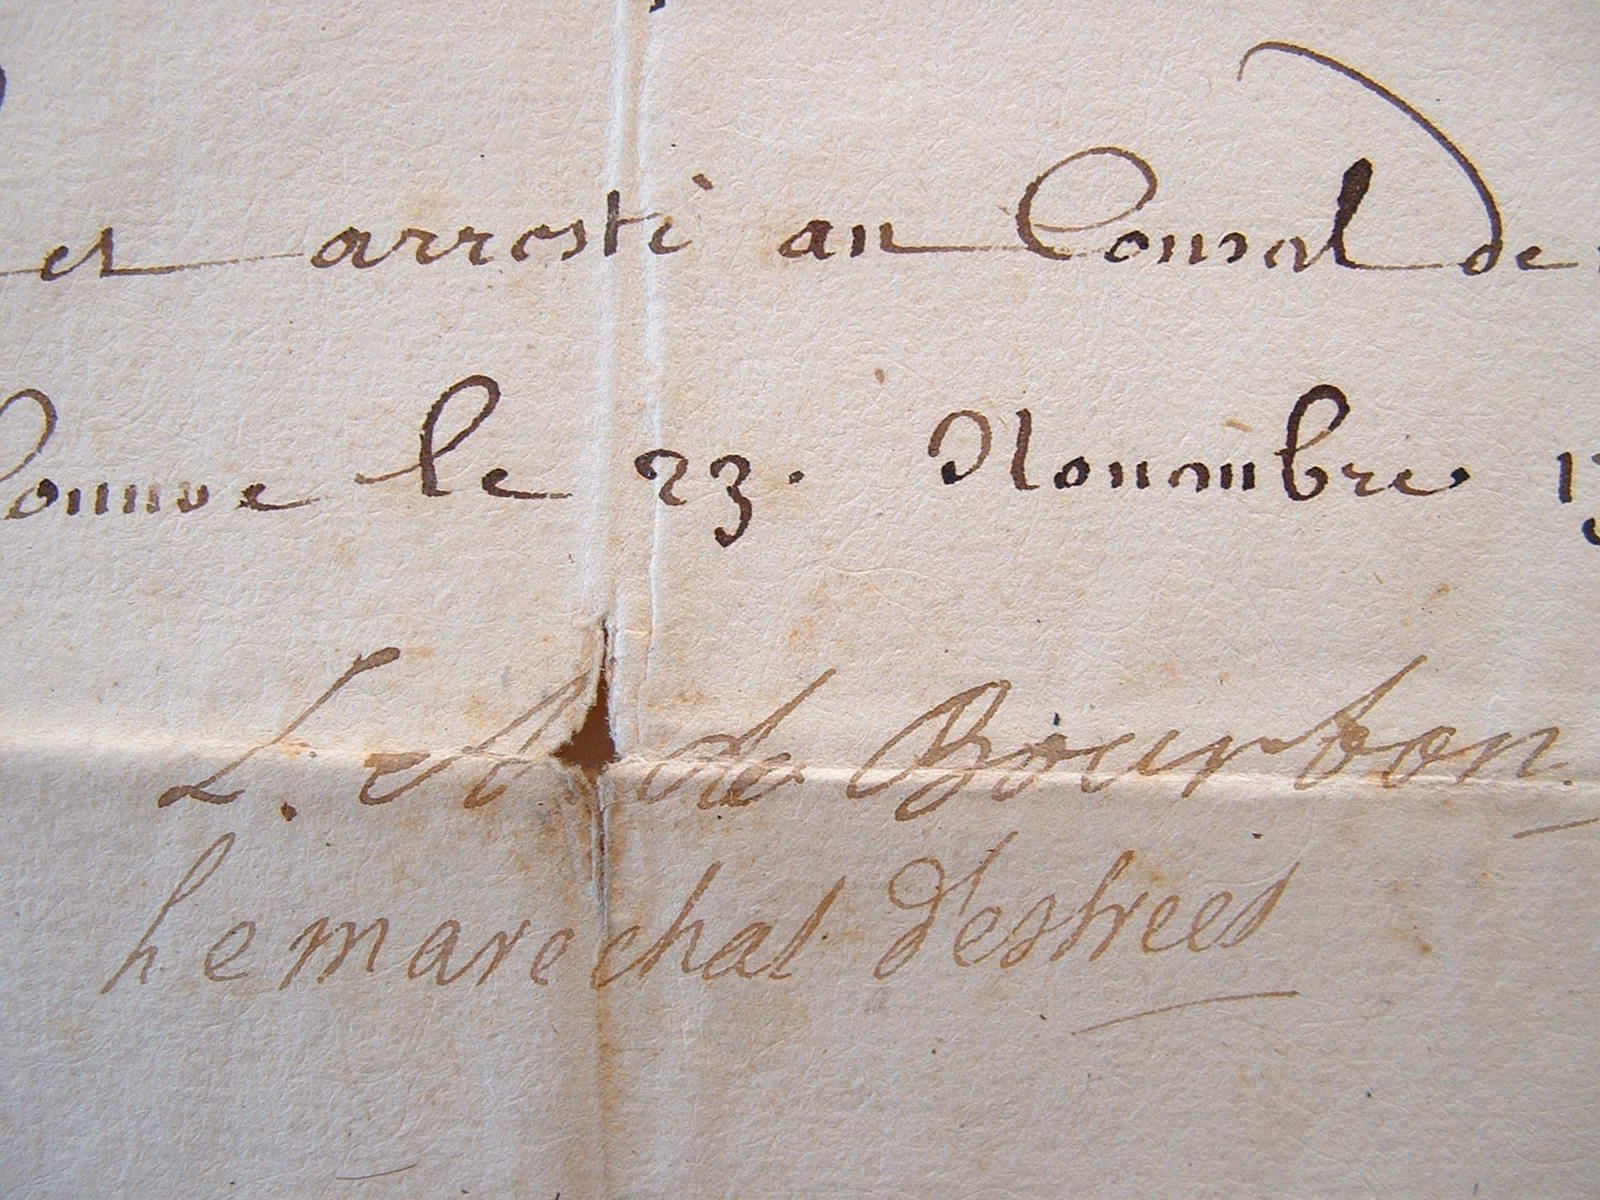 et arresté au Conseil de
Louvre le 23. Nouembre 17
L. A. de Bourbon
Le marechal d'estrées